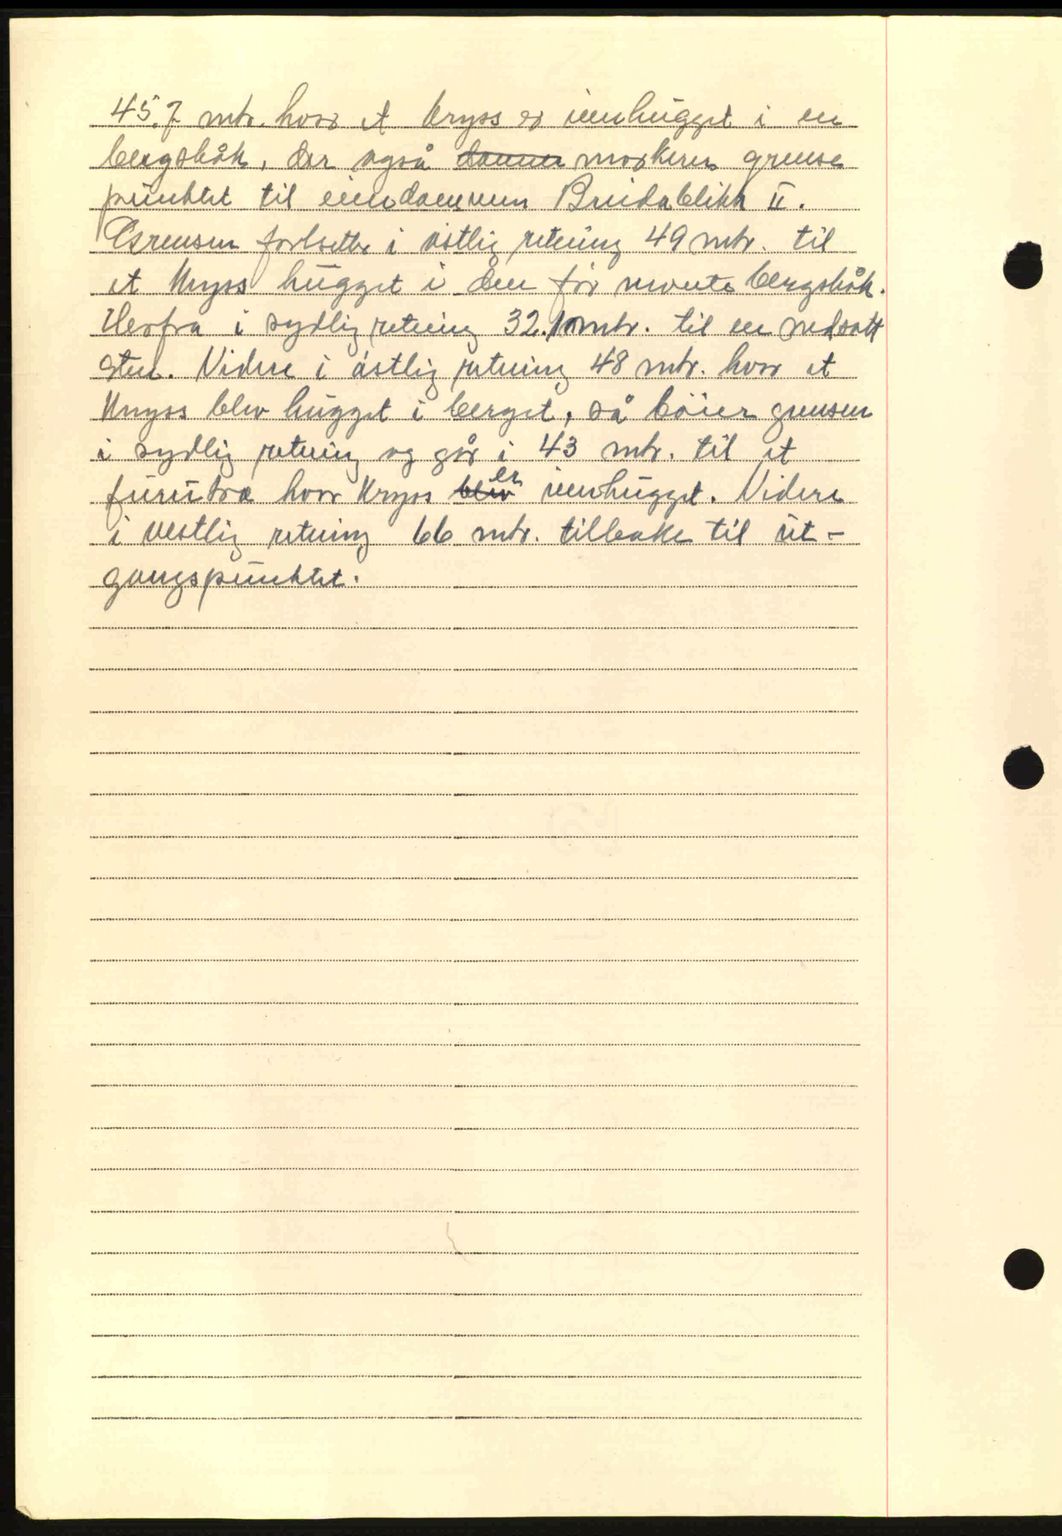 45.7 mtr. hvor et kryss er innhugget i en
bergshåk, der også danner markerer grense
punktet til eiendommen Breidablikk II.
Grensen fortsetter i østlig retning 49 mtr. til
et kryss hugget i den før nevnte bergshåk.
Herfra i sydlig retning 32.10 mtr. til en nedsatt
sten. Videre i østlig retning 48 mtr. hvor et
kryss blev hugget i berget, så bøier grensen
i sydlig retning og går i 43 mtr. til et
furutre hvor kryss blev er innhugget. Videre
i vestlig retning 66 mtr. tilbake til ut-
gangspunktet.